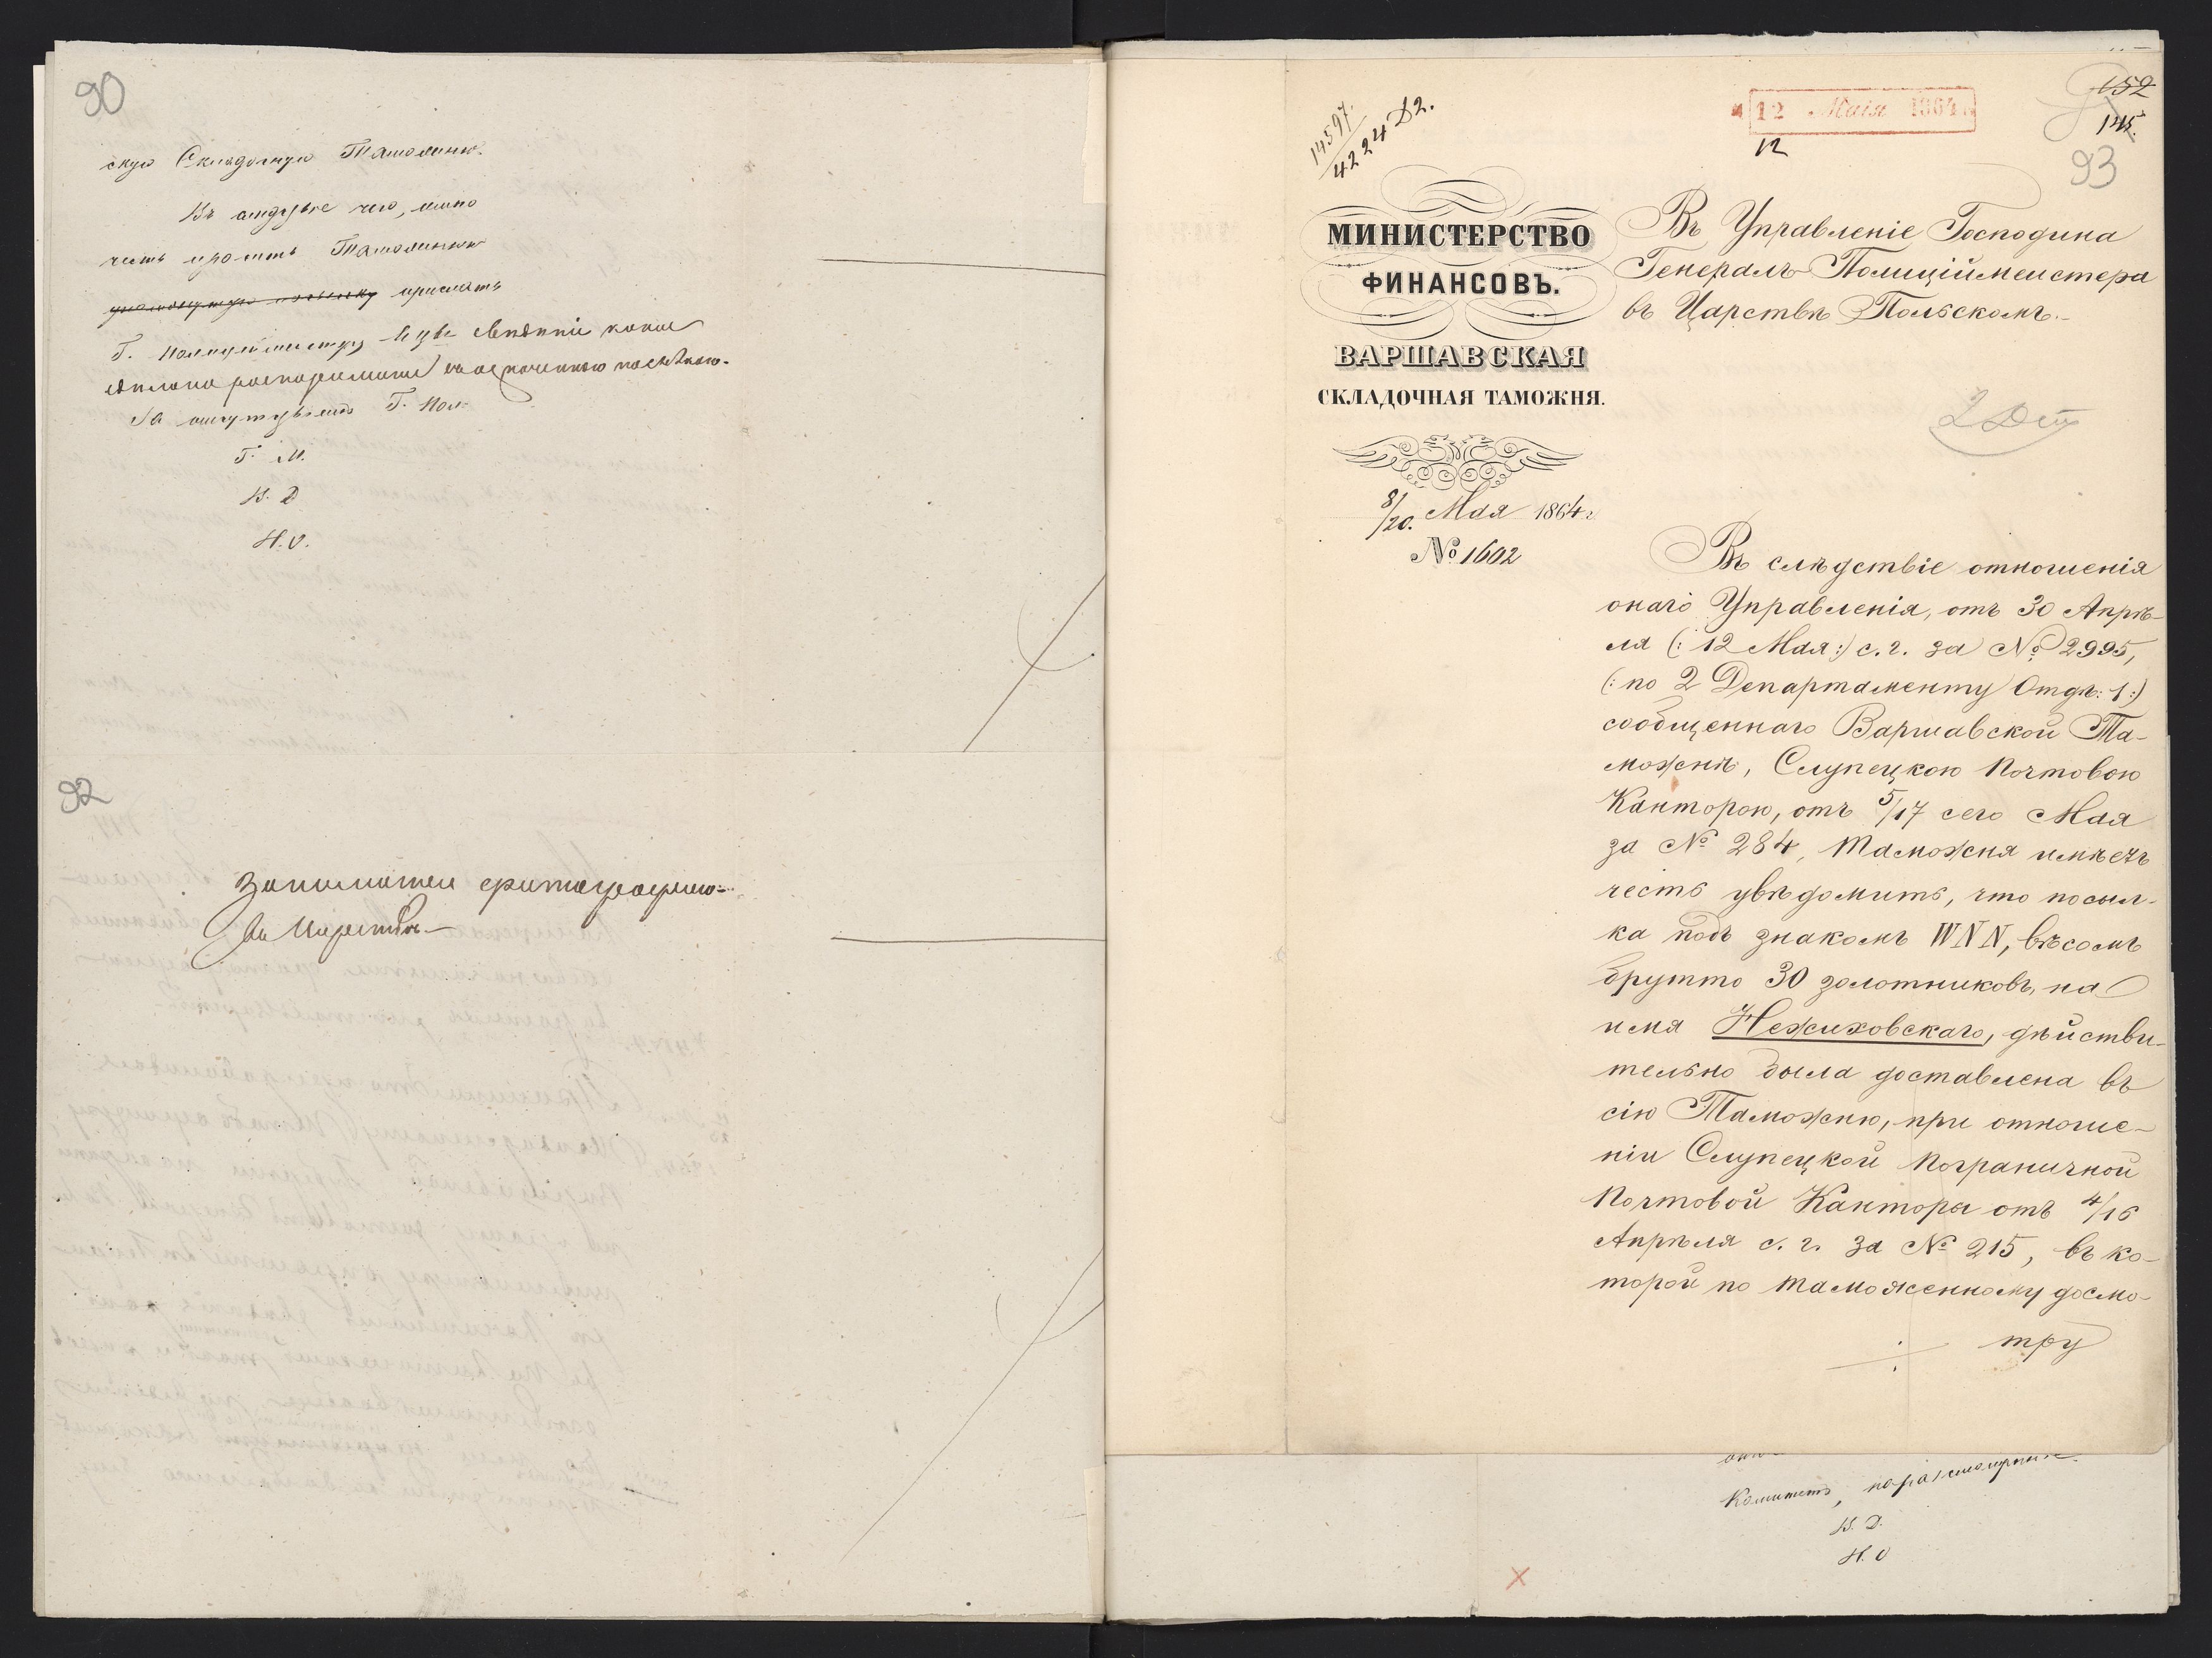 90
скую Складочную Таможню.
Въ слѣдствіе чего, имѣю
честь просить Таможню
прислать
Г. Полицеймейстеру
Г. Пол.
Г. М.
В. Д.
Н. О.
92
въ Царствѣ
14597.
4224 Д2.
12 Мая 1864
12
152
145.
93
МИНИСТЕРСТВО
ФИНАНСОВЪ.
ВАРШАВСКАЯ
СКЛАДОЧНАЯ ТАМОЖНЯ.
8/20. Мая 1864 г.
№ 1602
Въ Управленіе Господина
Генералъ Полиціймейстера
въ Царствѣ Польскомъ.
Въ слѣдствіе отношенія
онаго Управленія, отъ 30 Апрѣ-
ля (: 12 Мая :) с. г. за № 2995,
(: по 2 Департаменту Отдѣ: 1 :)
сообщеннаго Варшавской Та-
можнѣ, Слупецкою Почтовою
Канторою, отъ 5/17 сего Мая
за № 284, Таможня имѣетъ
честь увѣдомить, что посыл-
ка подъ знакомъ WNN, вѣсомъ
брутто 30 золотниковъ, на
имя Нежиховскаго, дѣйстви-
тельно была доставлена въ
сію Таможню, при отноше-
ніи Слупецкой Пограничной
Почтовой Канторы отъ 4/16
Апрѣля с. г. за № 215, въ ко-
торой по таможенному досмо-
тру
Комитетъ, на разсмотрѣніе.
В. Д.
Н. О